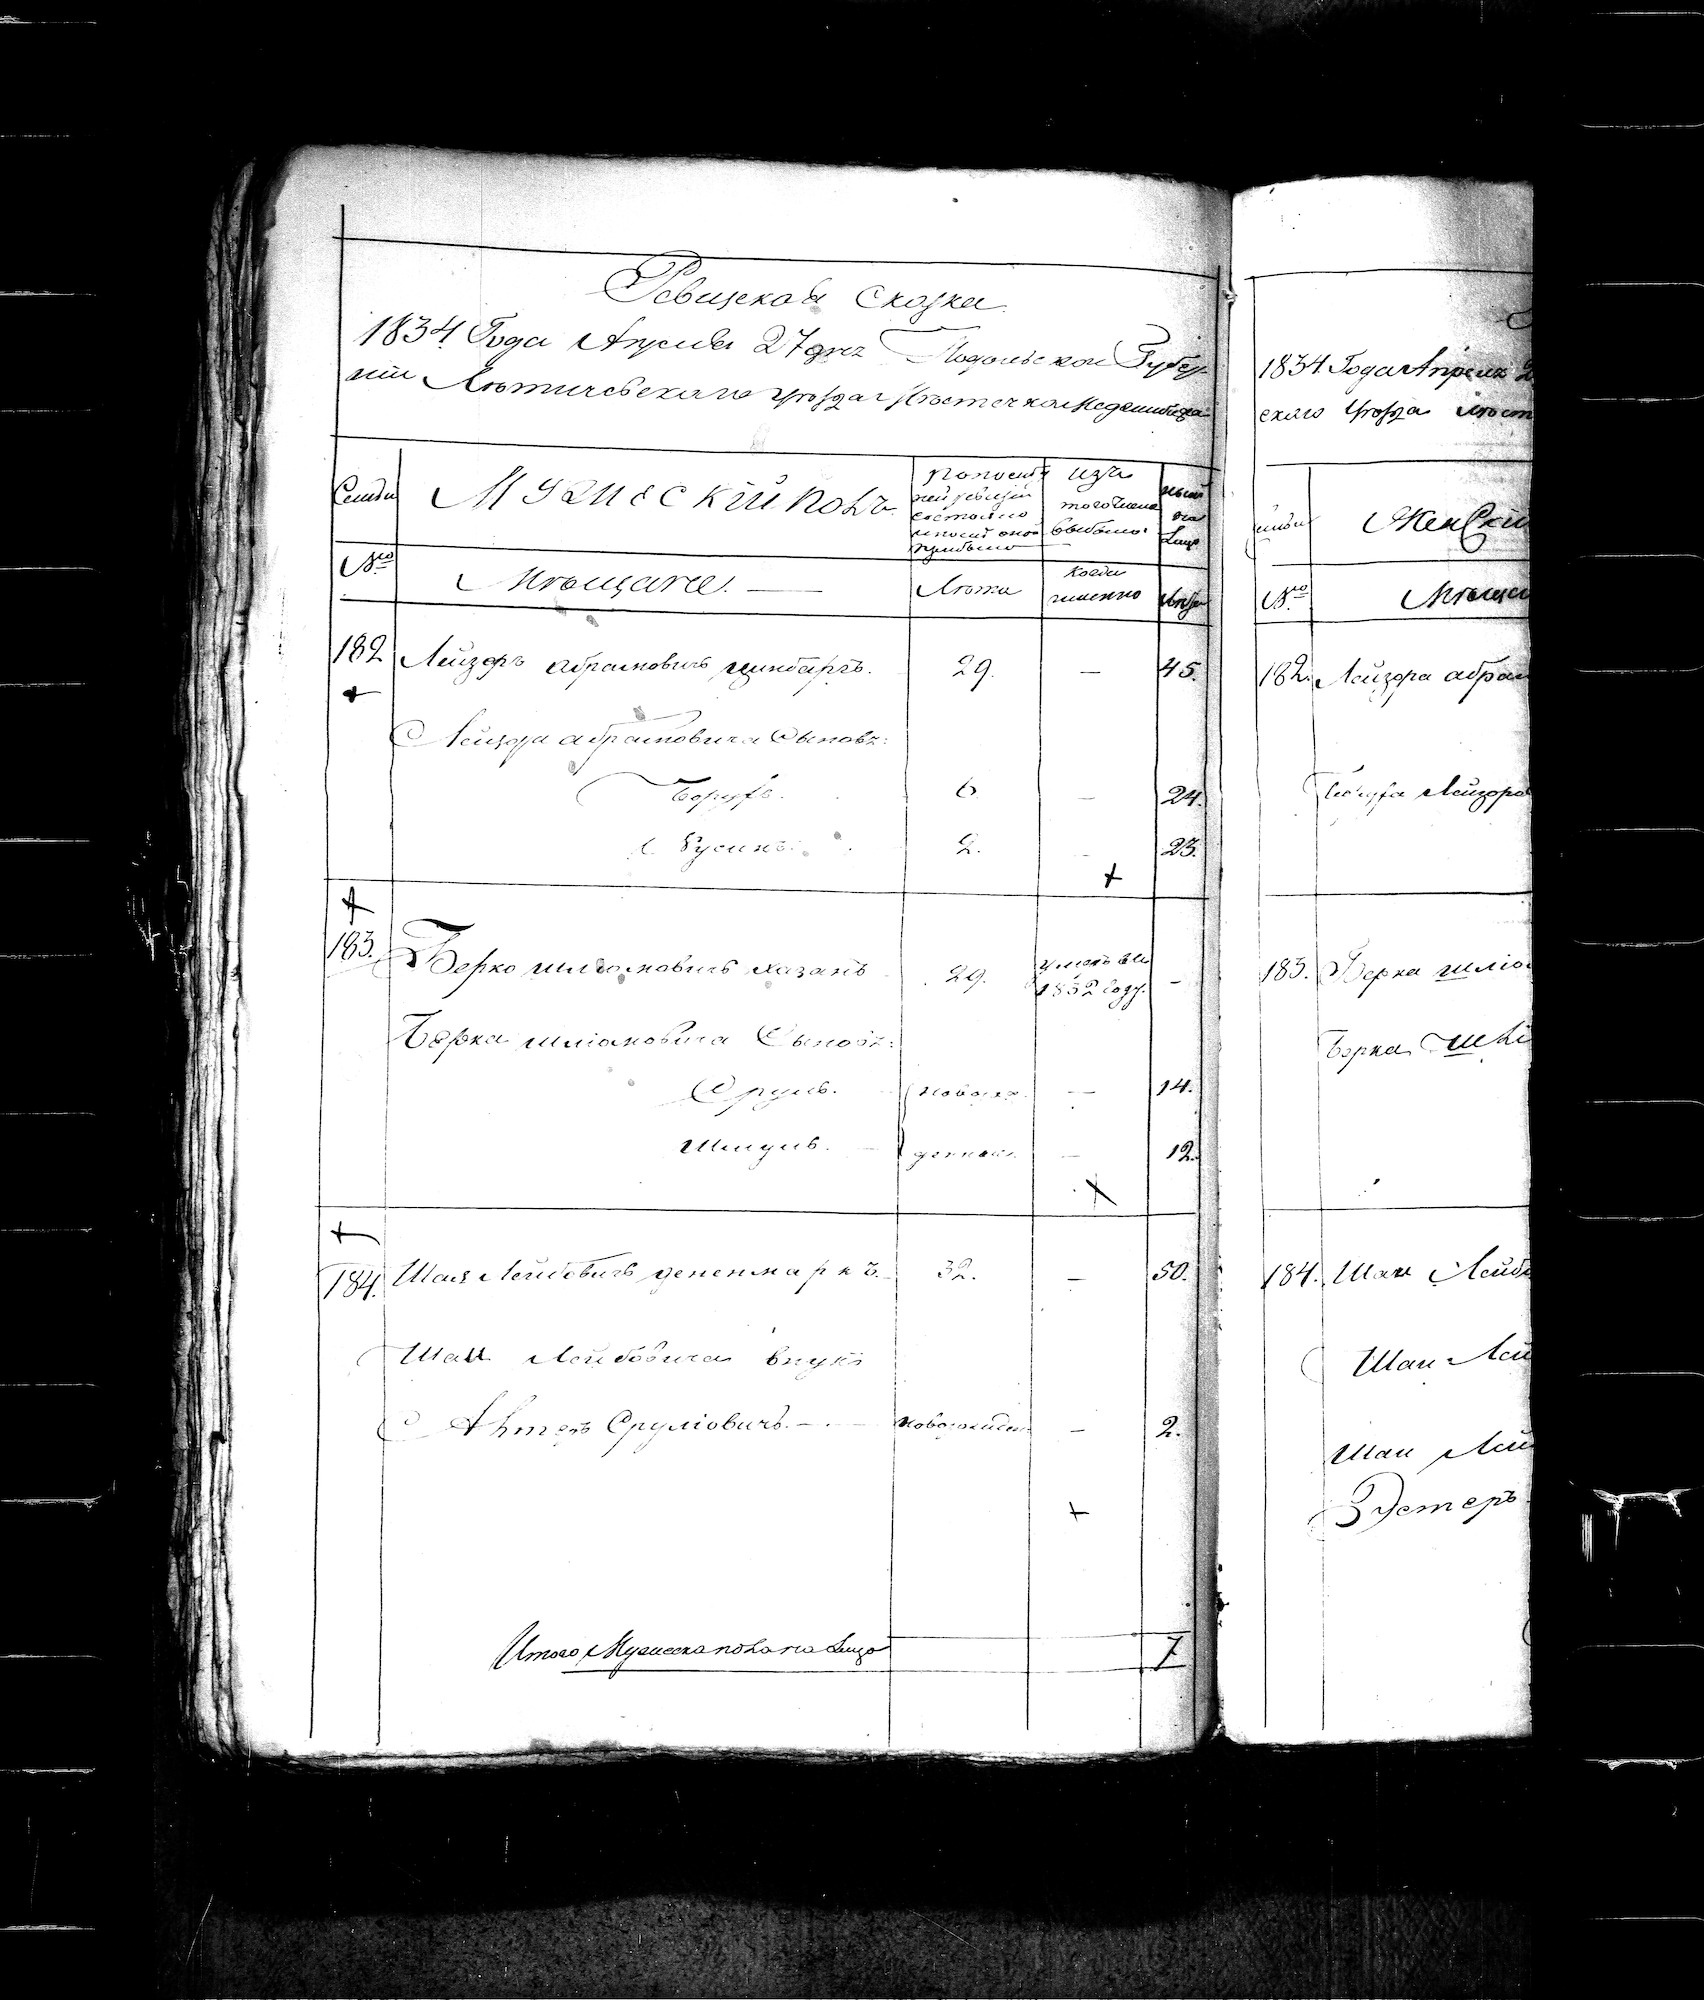 Ревизская Сказка
1834 Года Апреля 27 дня Подольской Губер
нии Летичевского уѣзда Мѣстечка Меджибожа
Семьи
МУЖЕСКІЙ ПОЛЪ
по послѣд
ней ревизіи
состояло
и послѣ оной
прибыло
изъ
того числа
выбыло
нынѣ
на
Лицо
№
Мѣщане.
Лѣта
когда
именно
Лѣта
182
Лейзеръ абрамовичъ 29. — 45.
Лейзора абрамовича Сыновъ:
Борухъ. 6 — 24.
2. — 23.
183.
Берко шліомовичъ хазанъ 29. умеръ въ —
1832 году.
Берка шліомовича Сыновъ:
Сруль. новорож — 14.
Шмуль. денные — 12.
184.
Шая Лейбовичъ 32. — 50.
Шаи Лейбовича внукъ
Сруліовичъ. новорожден — 2.
Итого Мужеска пола на Лицо 7
1834 Года Апреля 2
ского уѣзда мѣст
Женски
№
Мѣщан
182. Лейзора абрам
Боруха Лейзоро
183. Берка шліо
Берка шлі
184. Шаи Лейб
Шаи Лей
Шаи Лей
Эстеръ